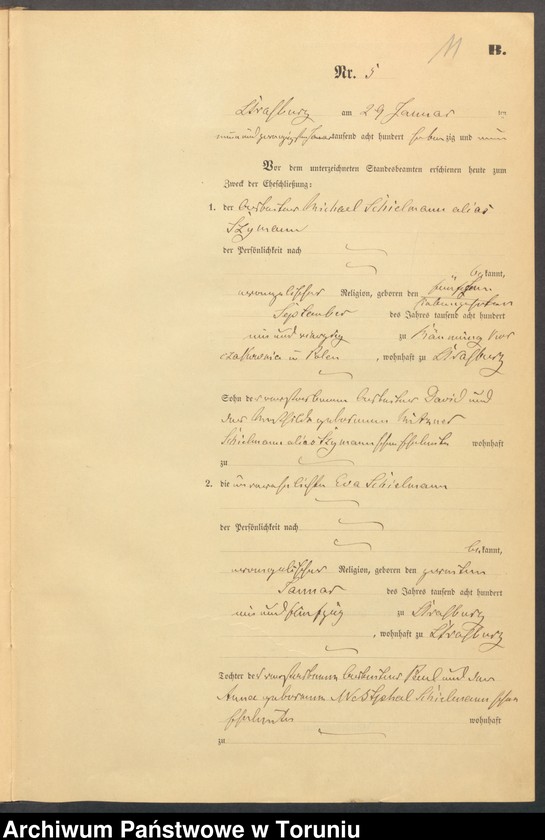 11
B.
Nr. 5
Straßburg am 29 Januar ten
neun und zwanzigsten Januar tausend acht hundert siebenzig und neun
Vor dem unterzeichneten Standesbeamten erschienen heute zum
Zweck der Eheschließung:
1. der Arbeiter Michael Schielmann alias
Szymann
der Persönlichkeit nach
be kannt,
evangelischer Religion, geboren den
September des Jahres tausend acht hundert
und vierzig zu
in Polen, wohnhaft zu Straßburg
Sohn des verstorbenen Arbeiter David und
der Mathilde geborenen
Schielmann alias Szymannschen Eheleute wohnhaft
zu
2. die unverehelichte Eva Schielmann
der Persönlichkeit nach
be kannt,
evangelischer Religion, geboren den zweiten
Januar des Jahres tausend acht hundert
und fünfzig zu Straßburg
, wohnhaft zu Straßburg
Tochter des verstorbenen Arbeiters Paul und der
Anna geborenen Westphal Schielmannschen
Eheleute wohnhaft
zu
Archiwum Państwowe w Toruniu